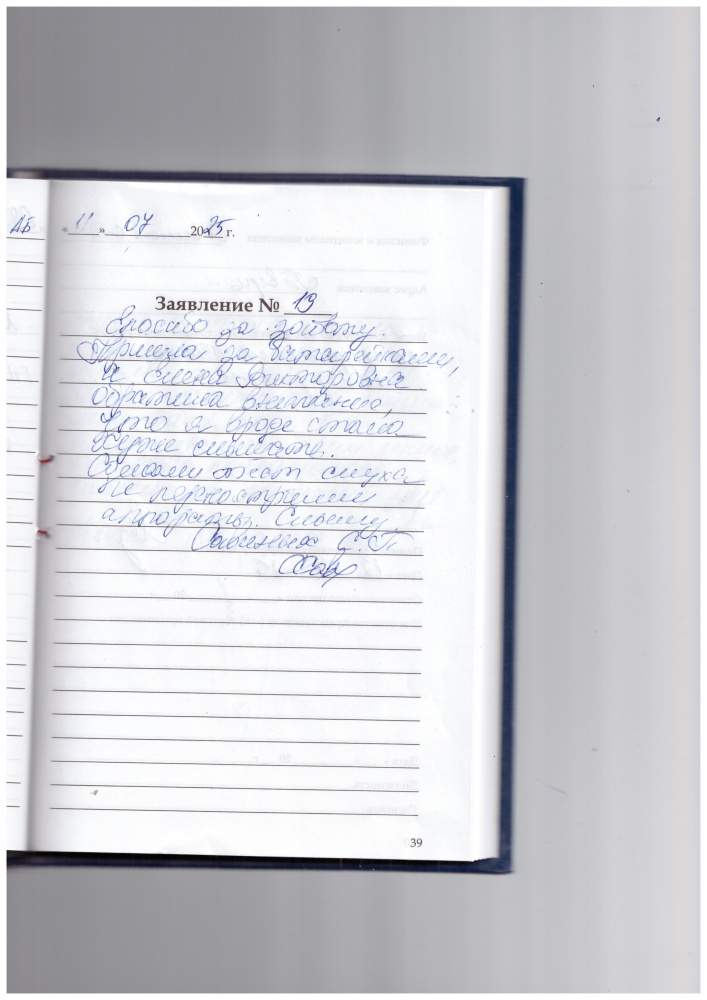 АБ
« 11 » 07 2025 г.
Заявление № 19
Спасибо за заботу.
Пришла за батарейками,
а Елена Викторовна
обратила внимание,
что я вроде стала
хуже слышать.
Сделали тест слуха
и перенастроили
аппараты. Слышу
Савиных С.П.
39